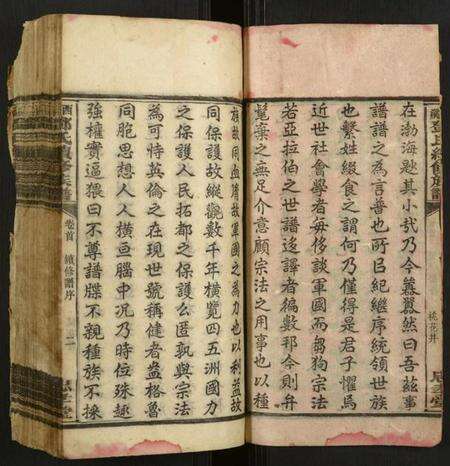 在渤海尠其小哉乃今囂囂然曰吾茲事
譜譜之為言普也所㠯紀繼序統領世族
也繫姓綴食之謂何乃僅得是君子懼焉
近世社會學者每侈談軍國而芻狗宗法
若亞拉伯之世譜迻譯者徧數邦今則弁
髦棄之無足介意顧宗法之用事也以種
族故同血胤故軍國之為力也以利益故
同保護故縱觀數千年橫覽四五洲國力
之保護人民拓都之保護么匿孰與宗法
為可恃英倫之在現世號稱健者盎格魯
同胞思想人人橫亘腦中況乃時位殊趣
強權實逼猥曰不尊譜牒不親種族不揀
卷首 續修譜序 二
桃花井